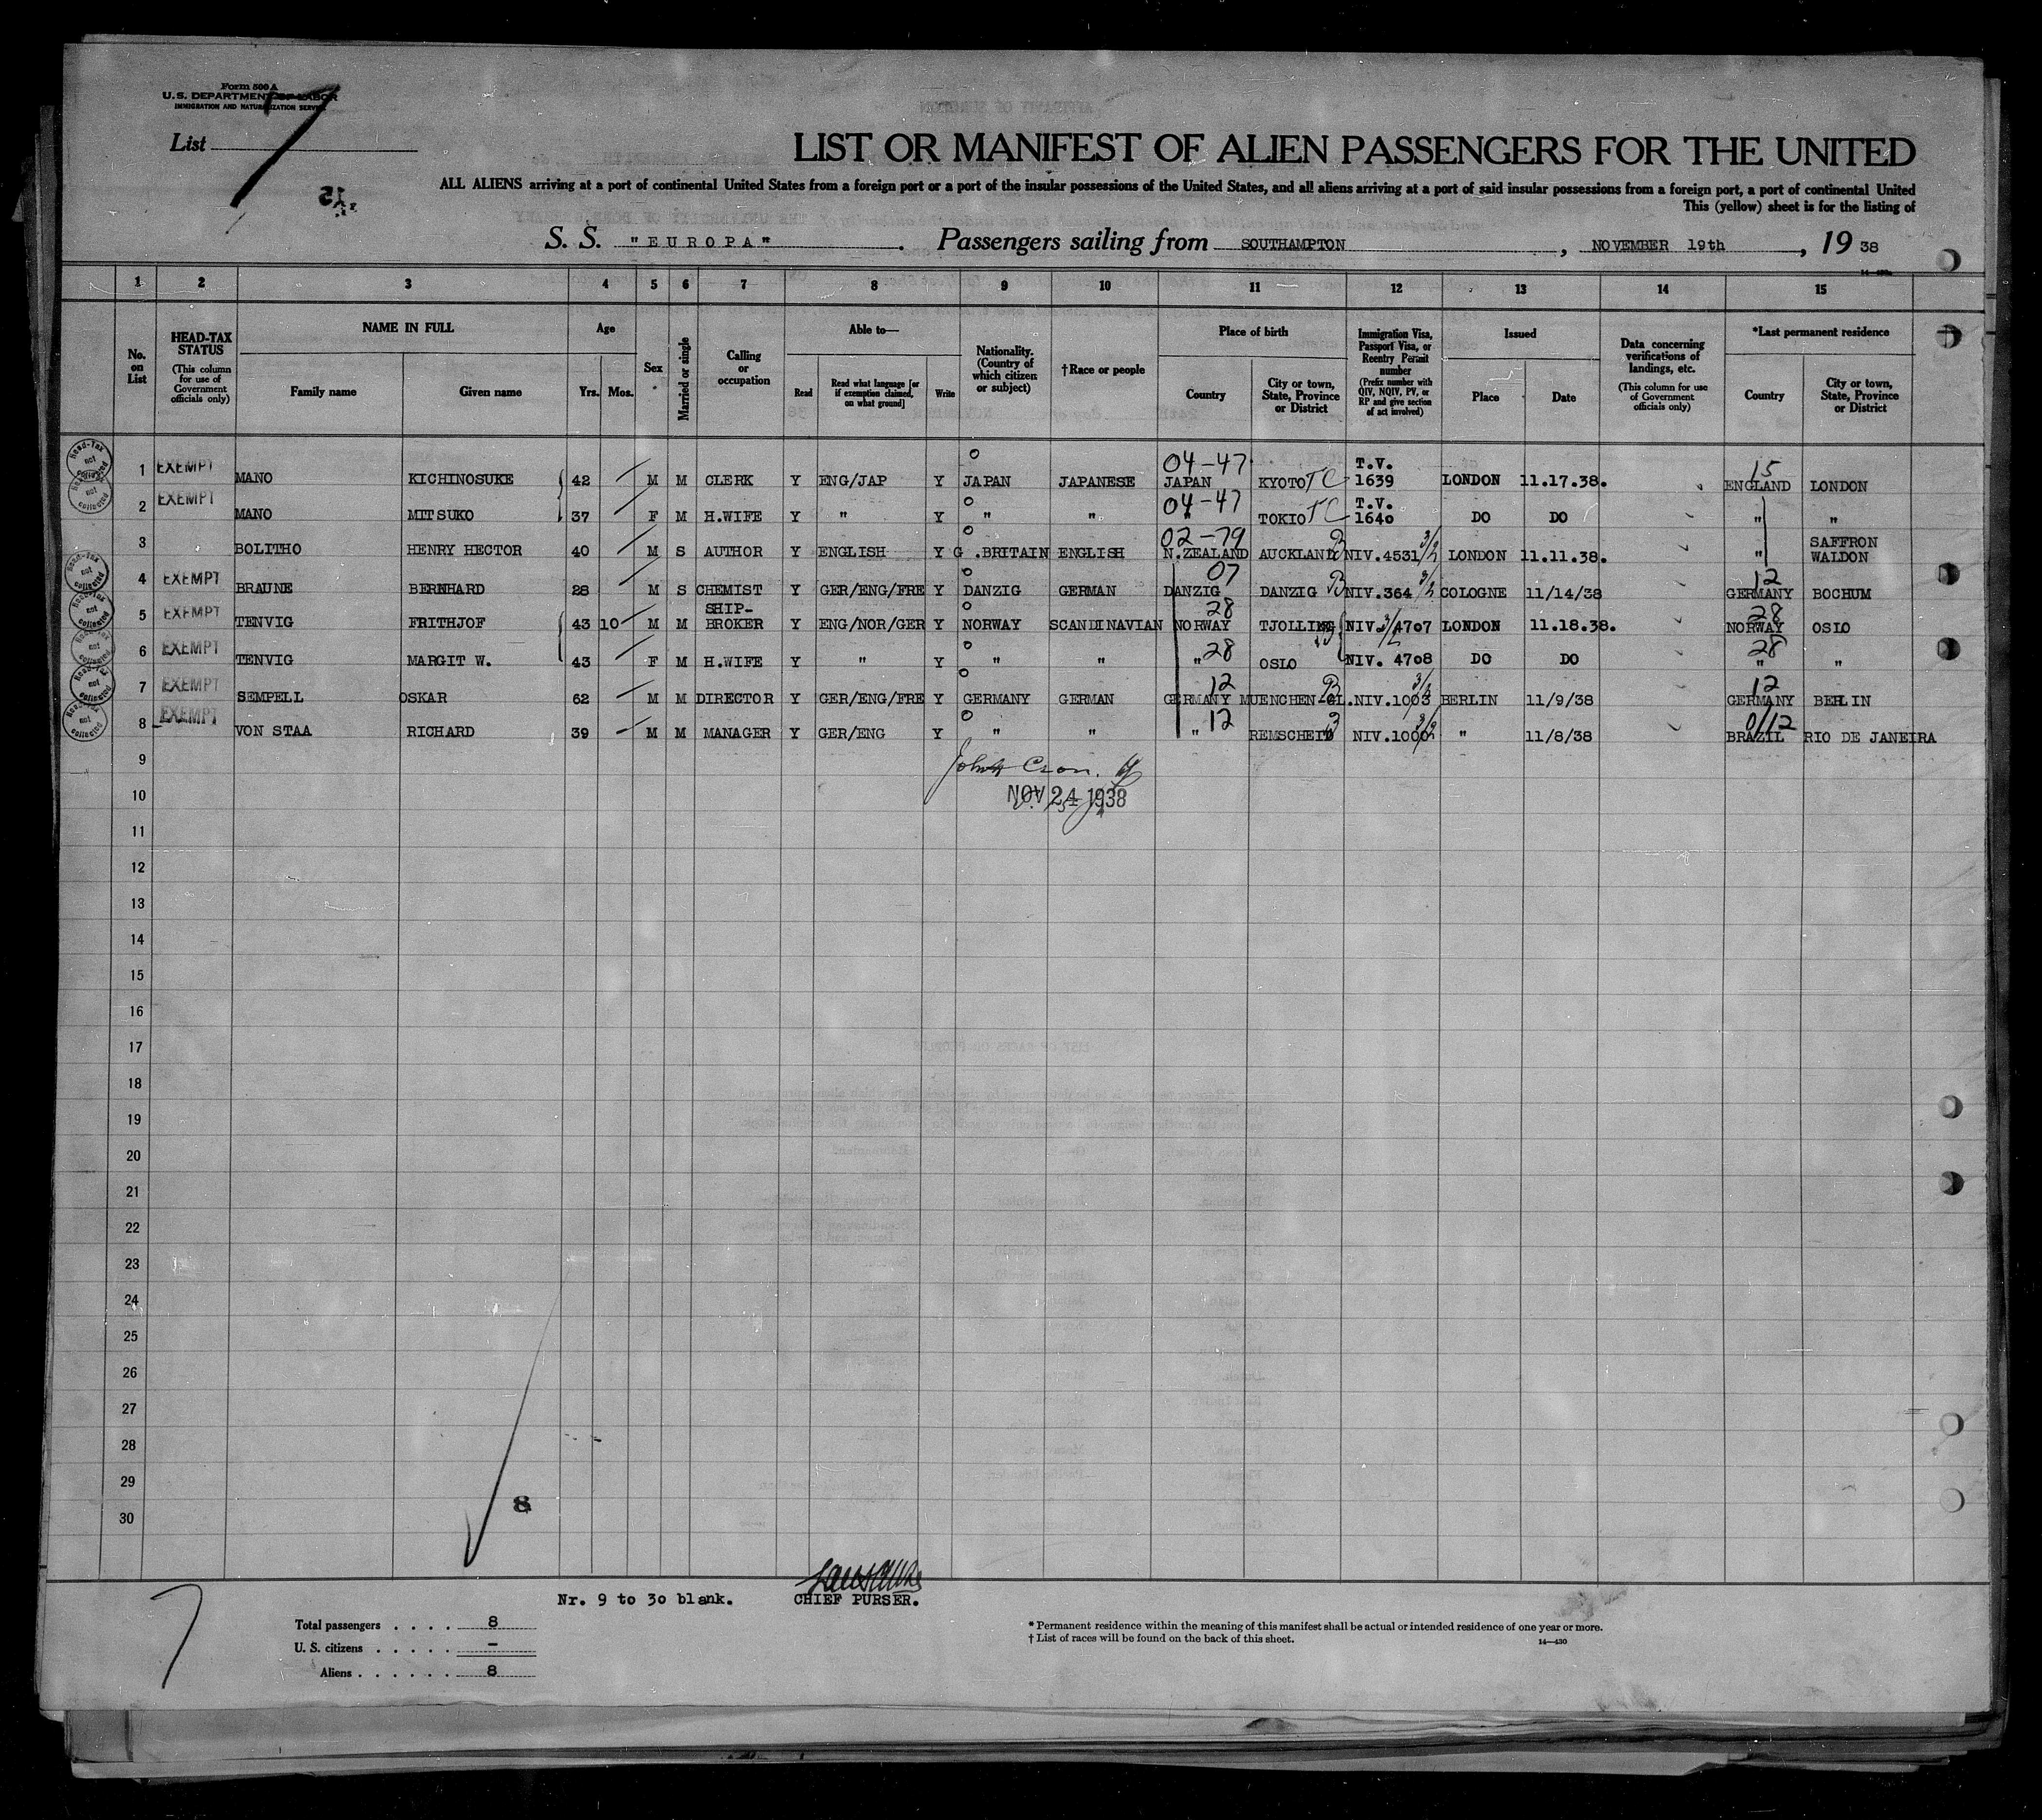 Form 500 A
U.S. DEPARTMENT OF LABOR
IMMIGRATION AND NATURALIZATION SERVICE
List 7
LIST OR MANIFEST OF ALIEN PASSENGERS FOR THE UNITED
ALL ALIENS arriving at a port of continental United States from a foreign port or a port of the insular possessions of the United States, and all aliens arriving at a port of said insular possessions from a foreign port, a port of continental United
This (yellow) sheet is for the listing of
S. S. "EUROPA". Passengers sailing from SOUTHAMPTON, NOVEMBER 19th, 19 38
1 2 3 4 5 6 7 8 9 10 11 12 13 14 15
No. on List
HEAD-TAX STATUS (This column for use of Government officials only)
NAME IN FULL
Family name Given name
Age
Yrs. Mos.
Sex
Married or single
Calling or occupation
Able to—
Read Read what language [or if exemption claimed, on what ground] Write
Nationality. (Country of which citizen or subject)
†Race or people
Place of birth
Country City or town, State, Province or District
Immigration Visa, Passport Visa, or Reentry Permit number (Prefix number with QIV, NQIV, PV, or RP and give section of act involved)
Issued
Place Date
Data concerning verifications of landings, etc. (This column for use of Government officials only)
*Last permanent residence
Country City or town, State, Province or District
1 EXEMPT MANO KICHINOSUKE 42 M M CLERK Y ENG/JAP Y JAPAN JAPANESE 04-47 JAPAN KYOTO TC T.V. 1639 LONDON 11.17.38. 15 ENGLAND LONDON
2 EXEMPT MANO MITSUKO 37 F M H.WIFE Y " Y " " 04-47 " TOKIO TC T.V. 1640 DO DO " "
3 BOLITHO HENRY HECTOR 40 M S AUTHOR Y ENGLISH Y G .BRITAIN ENGLISH 02-79 N.ZEALAND AUCKLAND B NIV.4531 3/2 LONDON 11.11.38. " SAFFRON WALDON
4 EXEMPT BRAUNE BERNHARD 28 M S CHEMIST Y GER/ENG/FRE Y DANZIG GERMAN 07 DANZIG DANZIG B NIV.364 3/2 COLOGNE 11/14/38 12 GERMANY BOCHUM
5 EXEMPT TENVIG FRITHJOF 43 10 M M SHIP-BROKER Y ENG/NOR/GER Y NORWAY SCANDINAVIAN 28 NORWAY TJOLLING NIV. 3/2 4707 LONDON 11.18.38. 28 NORWAY OSLO
6 EXEMPT TENVIG MARGIT W. 43 F M H.WIFE Y " Y " " 28 " OSLO NIV. 4708 DO DO 28 " "
7 EXEMPT SEMPELL OSKAR 62 M M DIRECTOR Y GER/ENG/FRE Y GERMANY GERMAN 12 GERMANY MUENCHEN-GL. B NIV.1003 3/2 BERLIN 11/9/38 12 GERMANY BERLIN
8 EXEMPT VON STAA RICHARD 39 M M MANAGER Y GER/ENG Y " " 12 " REMSCHEID B NIV.1000 3/2 " 11/8/38 0/12 BRAZIL RIO DE JANEIRA
9
10 NOV 24 1938
11
12
13
14
15
16
17
18
19
20
21
22
23
24
25
26
27
28
29
30
8
Nr. 9 to 30 blank.
CHIEF PURSER.
7
Total passengers . . . . 8
U. S. citizens . . . . . –
Aliens . . . . . . 8
* Permanent residence within the meaning of this manifest shall be actual or intended residence of one year or more.
† List of races will be found on the back of this sheet.
14—430